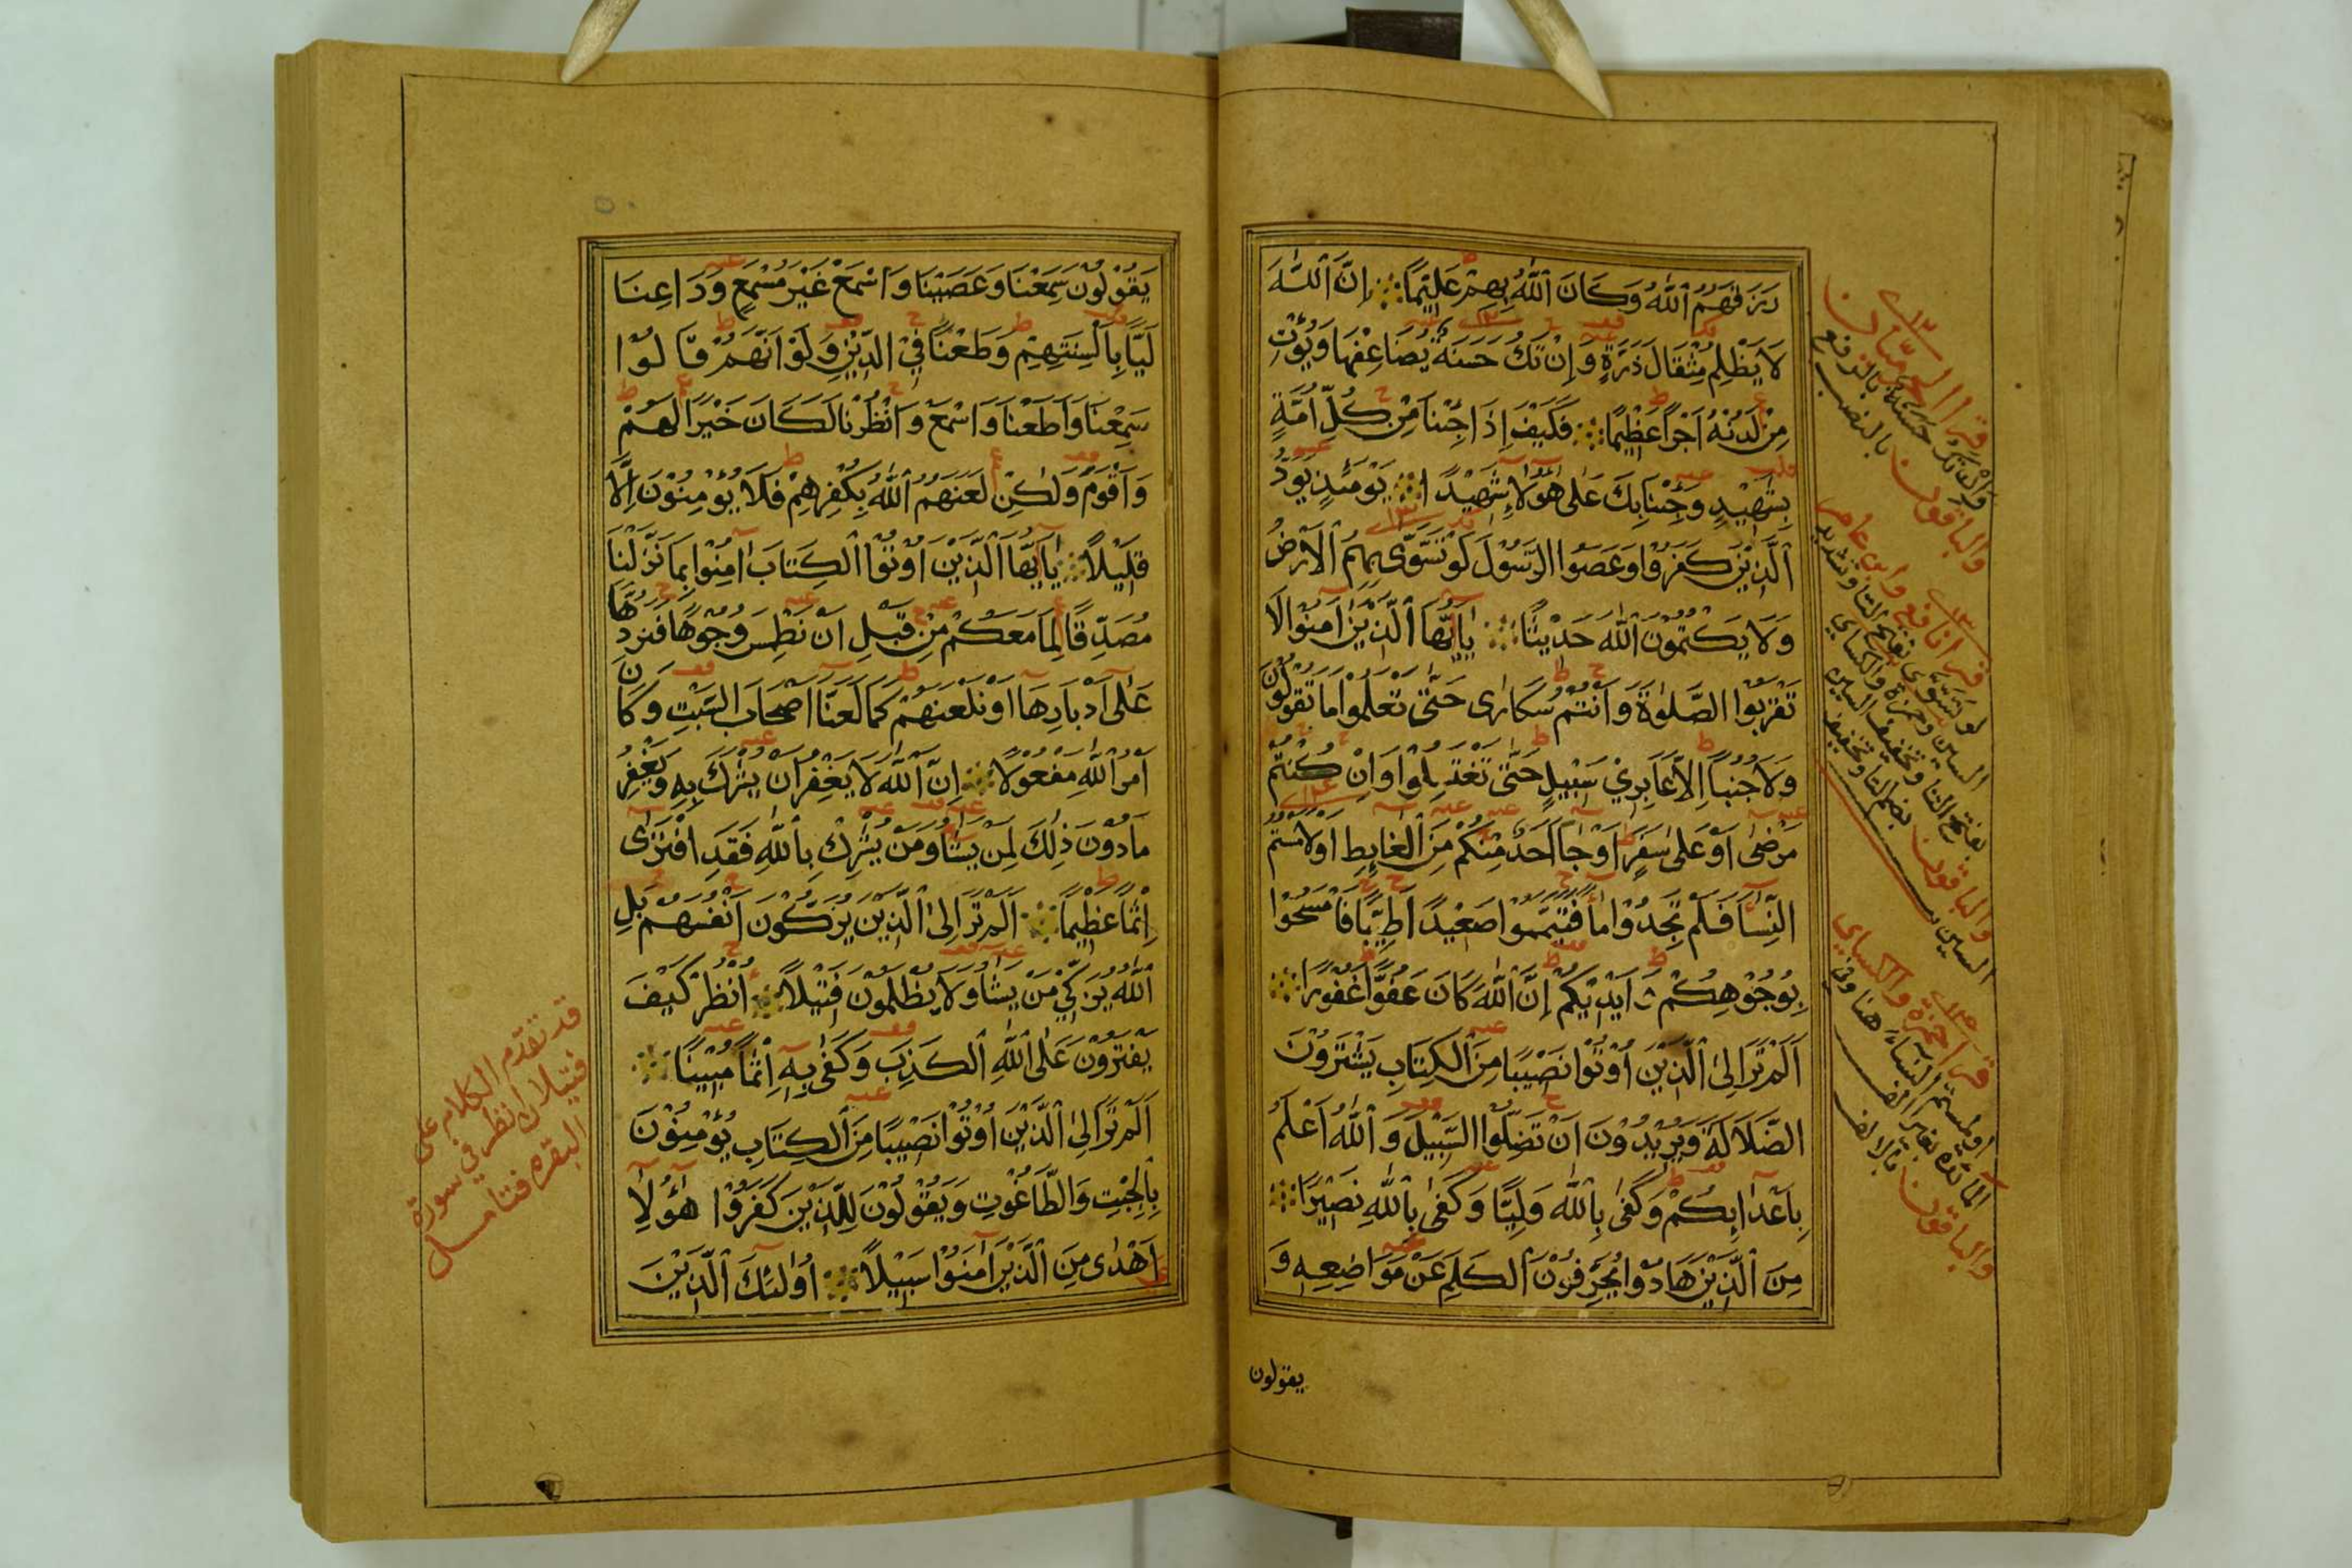 رَزَقَهُمُ ٱللَّهُ وَكَانَ ٱللَّهُ بِهِمْ عَلِيْمًا إِنَّ ٱللَّهَ
لَا يَظْلِمُ مِثْقَالَ ذَرَّةٍ وَإِنْ تَكُ حَسَنَةً يُضَاعِفْهَا وَيُؤْتِ
مِنْ لَدُنْهُ اَجْرًا عَظِيْمًا فَكَيْفَ إِذَا جِئْنَا مِنْ كُلِّ اُمَّةٍ
بِشَهِيْدٍ وَجِئْنَا بِكَ عَلٰى هٰؤُلَاءِ شَهِيْدًا يَوْمَئِذٍ يَوَدُّ
ٱلَّذِيْنَ كَفَرُوْا وَعَصَوُا الرَّسُوْلَ لَوْ تَسَّوّٰى بِهِمُ الْاَرْضُ
وَلَا يَكْتُمُوْنَ ٱللَّهَ حَدِيْثًا يٰاَيُّهَا ٱلَّذِيْنَ اٰمَنُوْا لَا
تَقْرَبُوا الصَّلٰوةَ وَاَنْتُمْ سُكَارٰى حَتّٰى تَعْلَمُوْا مَا تَقُوْلُوْنَ
وَلَا جُنُبًا اِلَّا عَابِرِيْ سَبِيْلٍ حَتّٰى تَغْتَسِلُوْا وَاِنْ كُنْتُمْ
مَرْضٰى اَوْ عَلٰى سَفَرٍ اَوْ جَاۤ اَحَدٌ مِنْكُمْ مِنَ الْغَايِطِ اَوْ لَامَسْتُمُ
النِّسَاۤ فَلَمْ تَجِدُوْا مَاۤ فَتَيَمَّمُوْا صَعِيْدًا طَيِّبًا فَامْسَحُوْا
بِوُجُوْهِكُمْ وَاَيْدِيْكُمْ إِنَّ ٱللَّهَ كَانَ عَفُوًّا غَفُوْرًا
اَلَمْ تَرَ اِلَى ٱلَّذِيْنَ اُوْتُوْا نَصِيْبًا مِنَ ٱلْكِتَابِ يَشْتَرُوْنَ
الضَّلَالَةَ وَيُرِيْدُوْنَ اَنْ تَضِلُّوا السَّبِيْلَ وَ ٱللَّهُ اَعْلَمُ
بِاَعْدَاۤىِٕكُمْ وَكَفٰى بِٱللَّهِ وَلِيًّا وَكَفٰى بِٱللَّهِ نَصِيْرًا
مِنَ ٱلَّذِيْنَ هَادُوْا يُحَرِّفُوْنَ ٱلْكَلِمَ عَنْ مَوَاضِعِهٖ وَ
يقولون
قرا الحرميان
وان تك حسنة بالرفع
والباقون بالنصب
قرا نافع وابن عامر
لو تسوى بفتح التا وتشديد
السين وحمزة والكساي
بفتح التا وتخفيف السين
والباقون بضم التا وتخفيف
السين
قرا حمزة والكساي
او لمستم النساء هنا وفي
المائده بغير الف
والباقون بالالف
يَقُوْلُوْنَ سَمِعْنَا وَعَصَيْنَا وَاسْمَعْ غَيْرَ مُسْمَعٍ وَرَاعِنَا
لَيًّا بِاَلْسِنَتِهِمْ وَطَعْنًا فِي الدِّيْنِ وَلَوْ اَنَّهُمْ قَالُوْا
سَمِعْنَا وَاَطَعْنَا وَاسْمَعْ وَانْظُرْنَا لَكَانَ خَيْرًا لَهُمْ
وَاَقْوَمَ وَلٰكِنْ لَعَنَهُمُ ٱللَّهُ بِكُفْرِهِمْ فَلَا يُؤْمِنُوْنَ اِلَّا
قَلِيْلًا يٰاَيُّهَا ٱلَّذِيْنَ اُوْتُوْا ٱلْكِتَابَ اٰمِنُوْا بِمَا نَزَّلْنَا
مُصَدِّقًا لِمَا مَعَكُمْ مِنْ قَبْلِ اَنْ نَطْمِسَ وُجُوْهًا فَنَرُدَّهَا
عَلٰى اَدْبَارِهَا اَوْ نَلْعَنَهُمْ كَمَا لَعَنَّا اَصْحَابَ السَّبْتِ وَكَانَ
اَمْرُ ٱللَّهِ مَفْعُوْلًا اِنَّ ٱللَّهَ لَا يَغْفِرُ اَنْ يُشْرَكَ بِهٖ وَيَغْفِرُ
مَا دُوْنَ ذٰلِكَ لِمَنْ يَشَاۤ وَمَنْ يُشْرِكْ بِٱللَّهِ فَقَدِ افْتَرٰى
اِثْمًا عَظِيْمًا اَلَمْ تَرَ اِلَى ٱلَّذِيْنَ يُزَكُّوْنَ اَنْفُسَهُمْ بَلِ
ٱللَّهُ يُزَكِّيْ مَنْ يَشَاۤ وَلَا يُظْلَمُوْنَ فَتِيْلًا اُنْظُرْ كَيْفَ
يَفْتَرُوْنَ عَلَى ٱللَّهِ ٱلْكَذِبَ وَكَفٰى بِهٖ اِثْمًا مُبِيْنًا
اَلَمْ تَرَ اِلَى ٱلَّذِيْنَ اُوْتُوْا نَصِيْبًا مِنَ ٱلْكِتَابِ يُؤْمِنُوْنَ
بِالْجِبْتِ وَالطَّاغُوْتِ وَيَقُوْلُوْنَ لِلَّذِيْنَ كَفَرُوْا هٰؤُلَاۤءِ
اَهْدٰى مِنَ ٱلَّذِيْنَ اٰمَنُوْا سَبِيْلًا اُولٰئِكَ ٱلَّذِيْنَ
قد تقدم الكلام على
فتيلا انظر في سورة
البقره فتامل